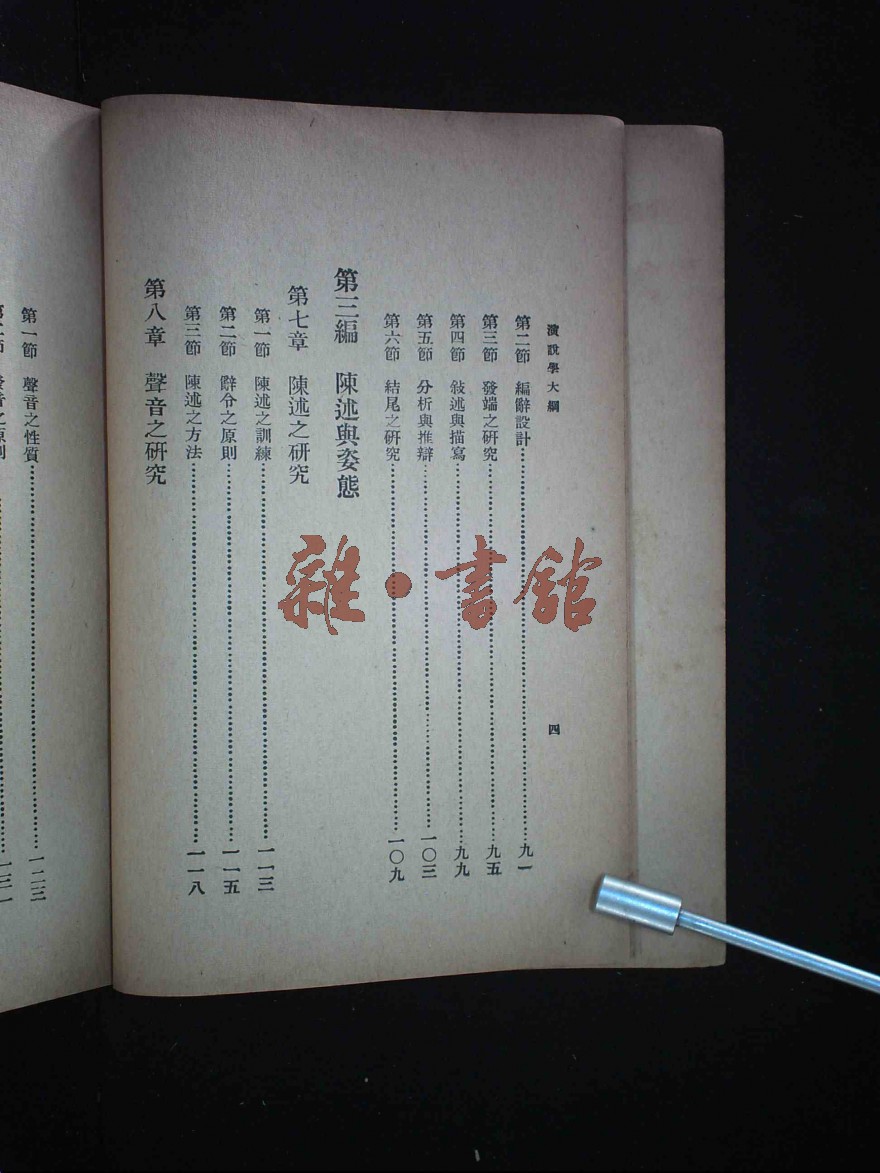 演說學大綱
四
第二節 編辭設計……九一
第三節 發端之研究……九五
第四節 敍述與描寫……九九
第五節 分析與推辯……一〇三
第六節 結尾之研究……一〇九
第三編 陳述與姿態
第七章 陳述之研究
第一節 陳述之訓練……一一三
第二節 辭令之原則……一一五
第三節 陳述之方法……一一八
第八章 聲音之研究
第一節 聲音之性質……一二三
雜·書館